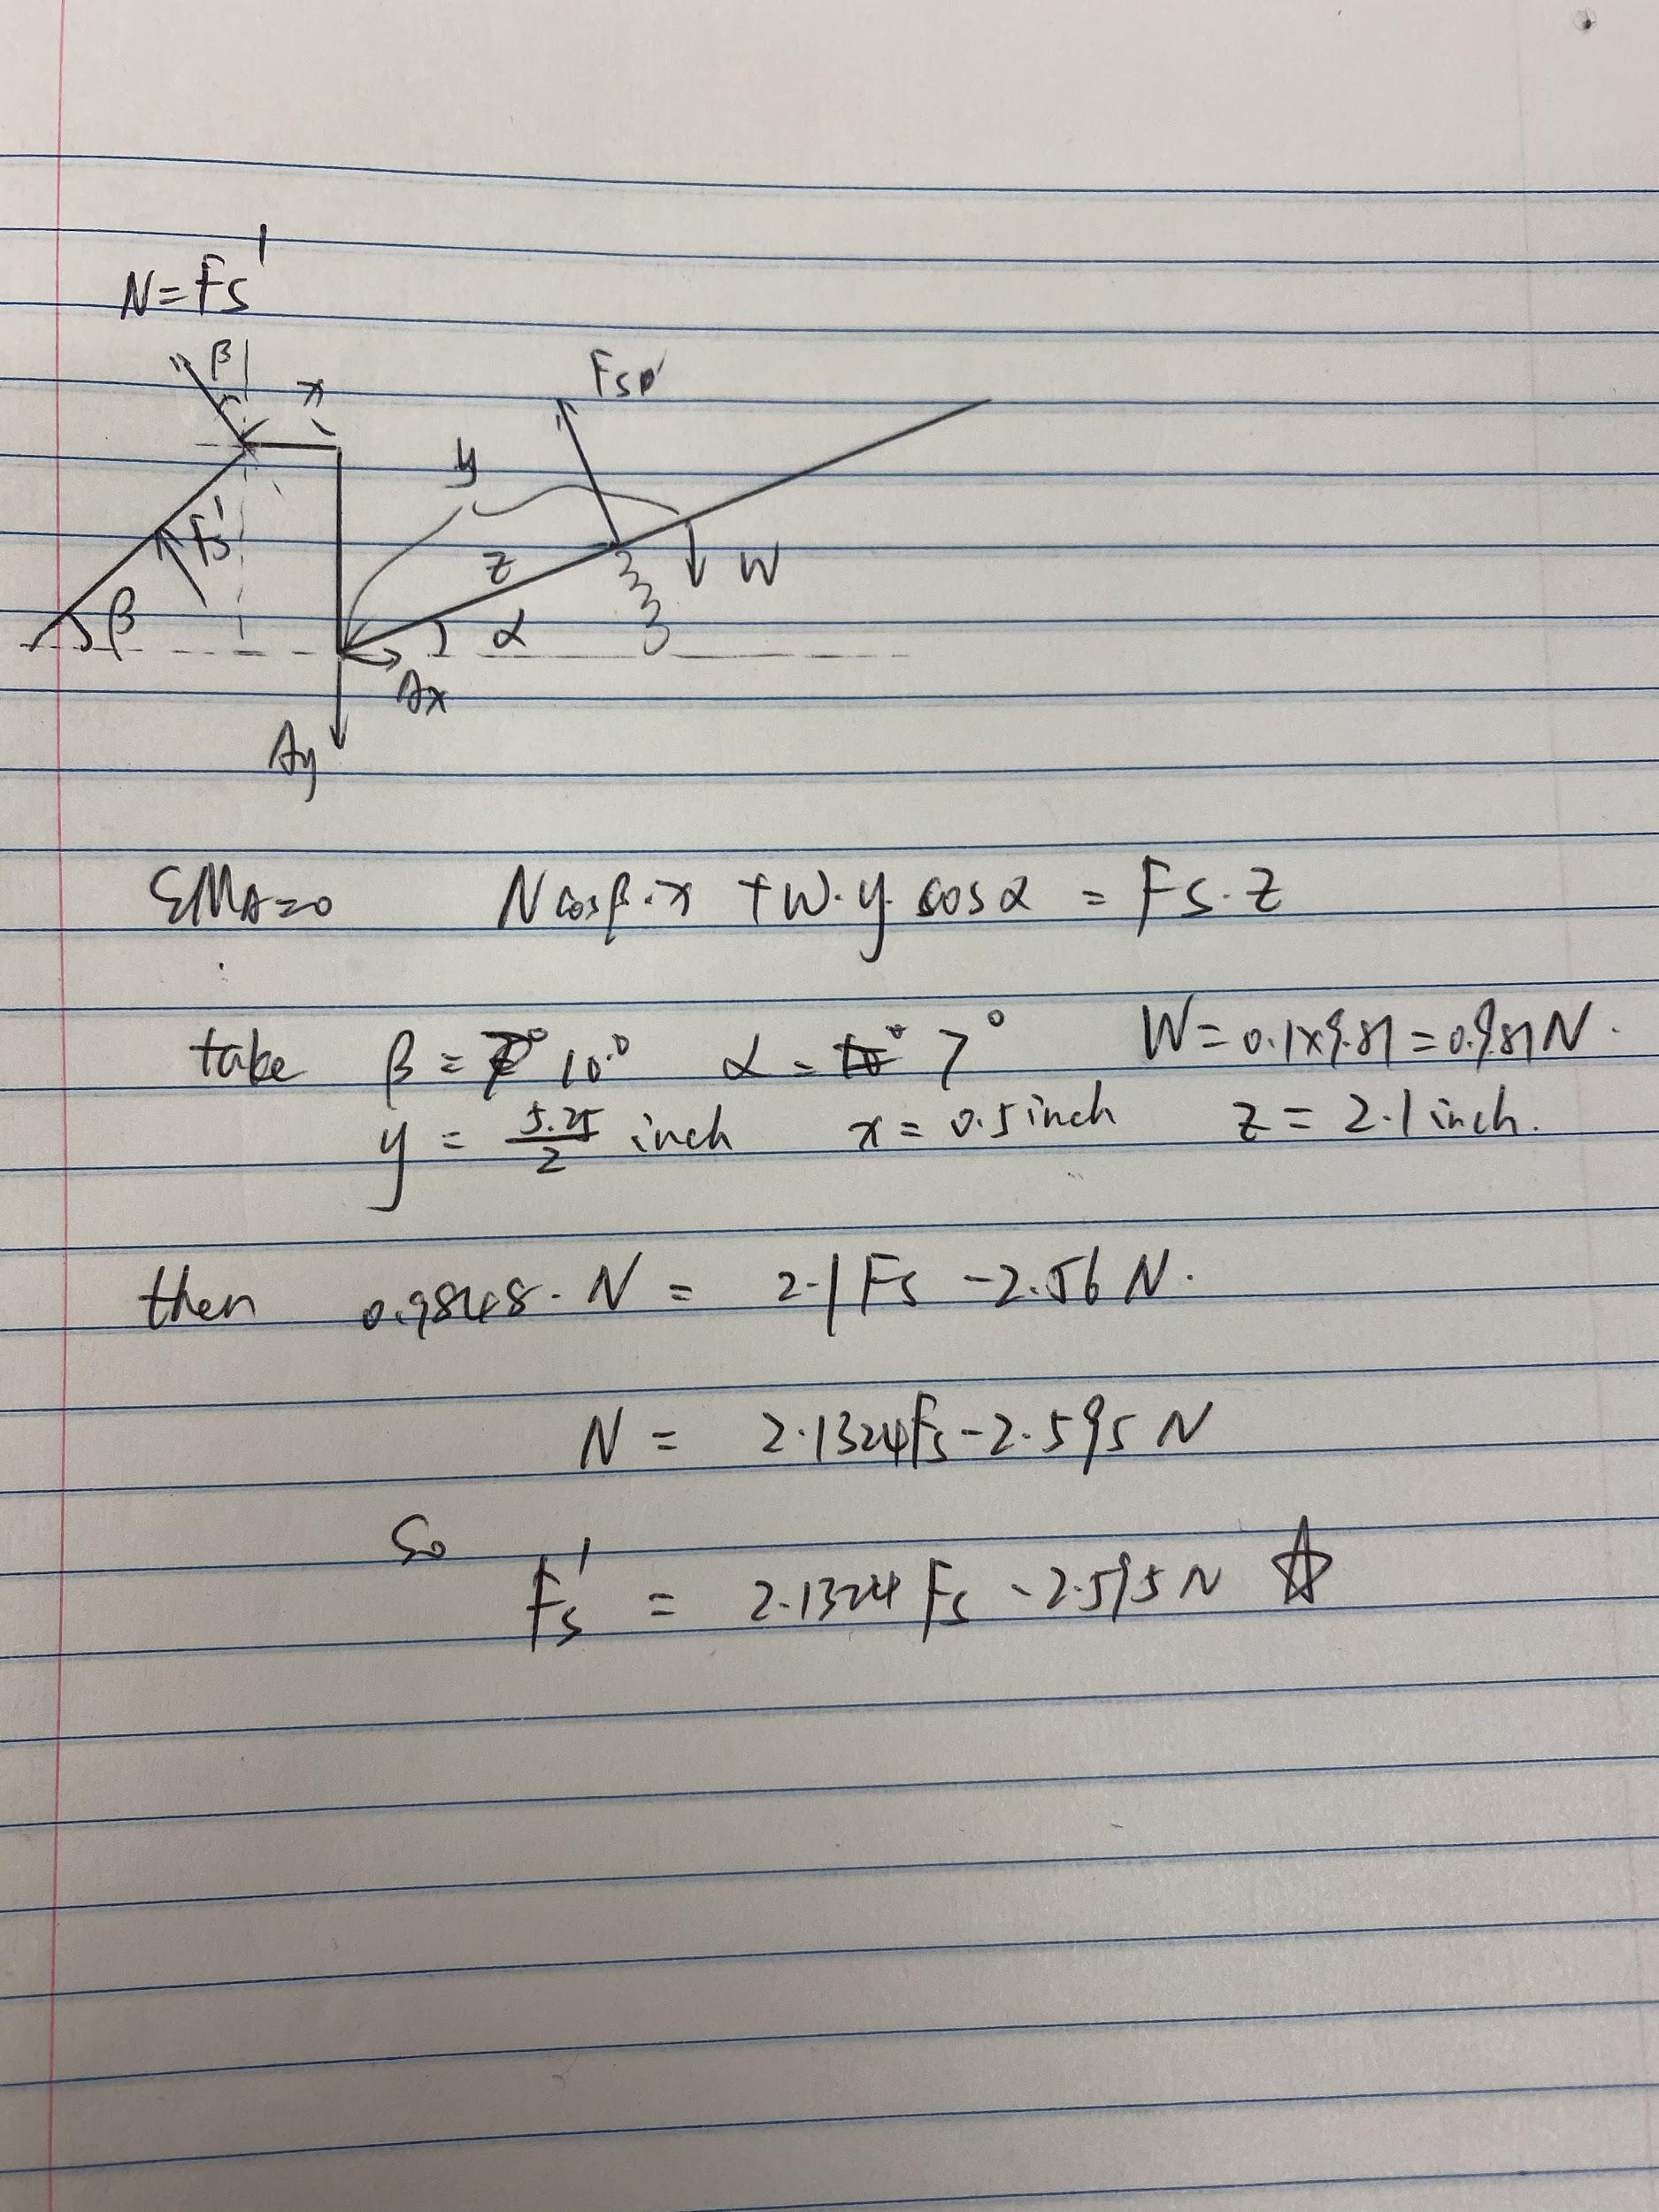 N = Fs'
β
x
Fs'
y
Fs'
z
W
β
α
Ax
Ay
ΣMA=0 N cosβ·x + W·y·cosα = Fs·z
take β = 10° α = 7° W = 0.1×9.81 = 0.981N.
y = 5.25/2 inch x = 0.5 inch z = 2.1 inch.
then 0.9848·N = 2.1Fs - 2.56N.
N = 2.1324Fs - 2.595N
So
Fs' = 2.1324Fs - 2.595N ☆